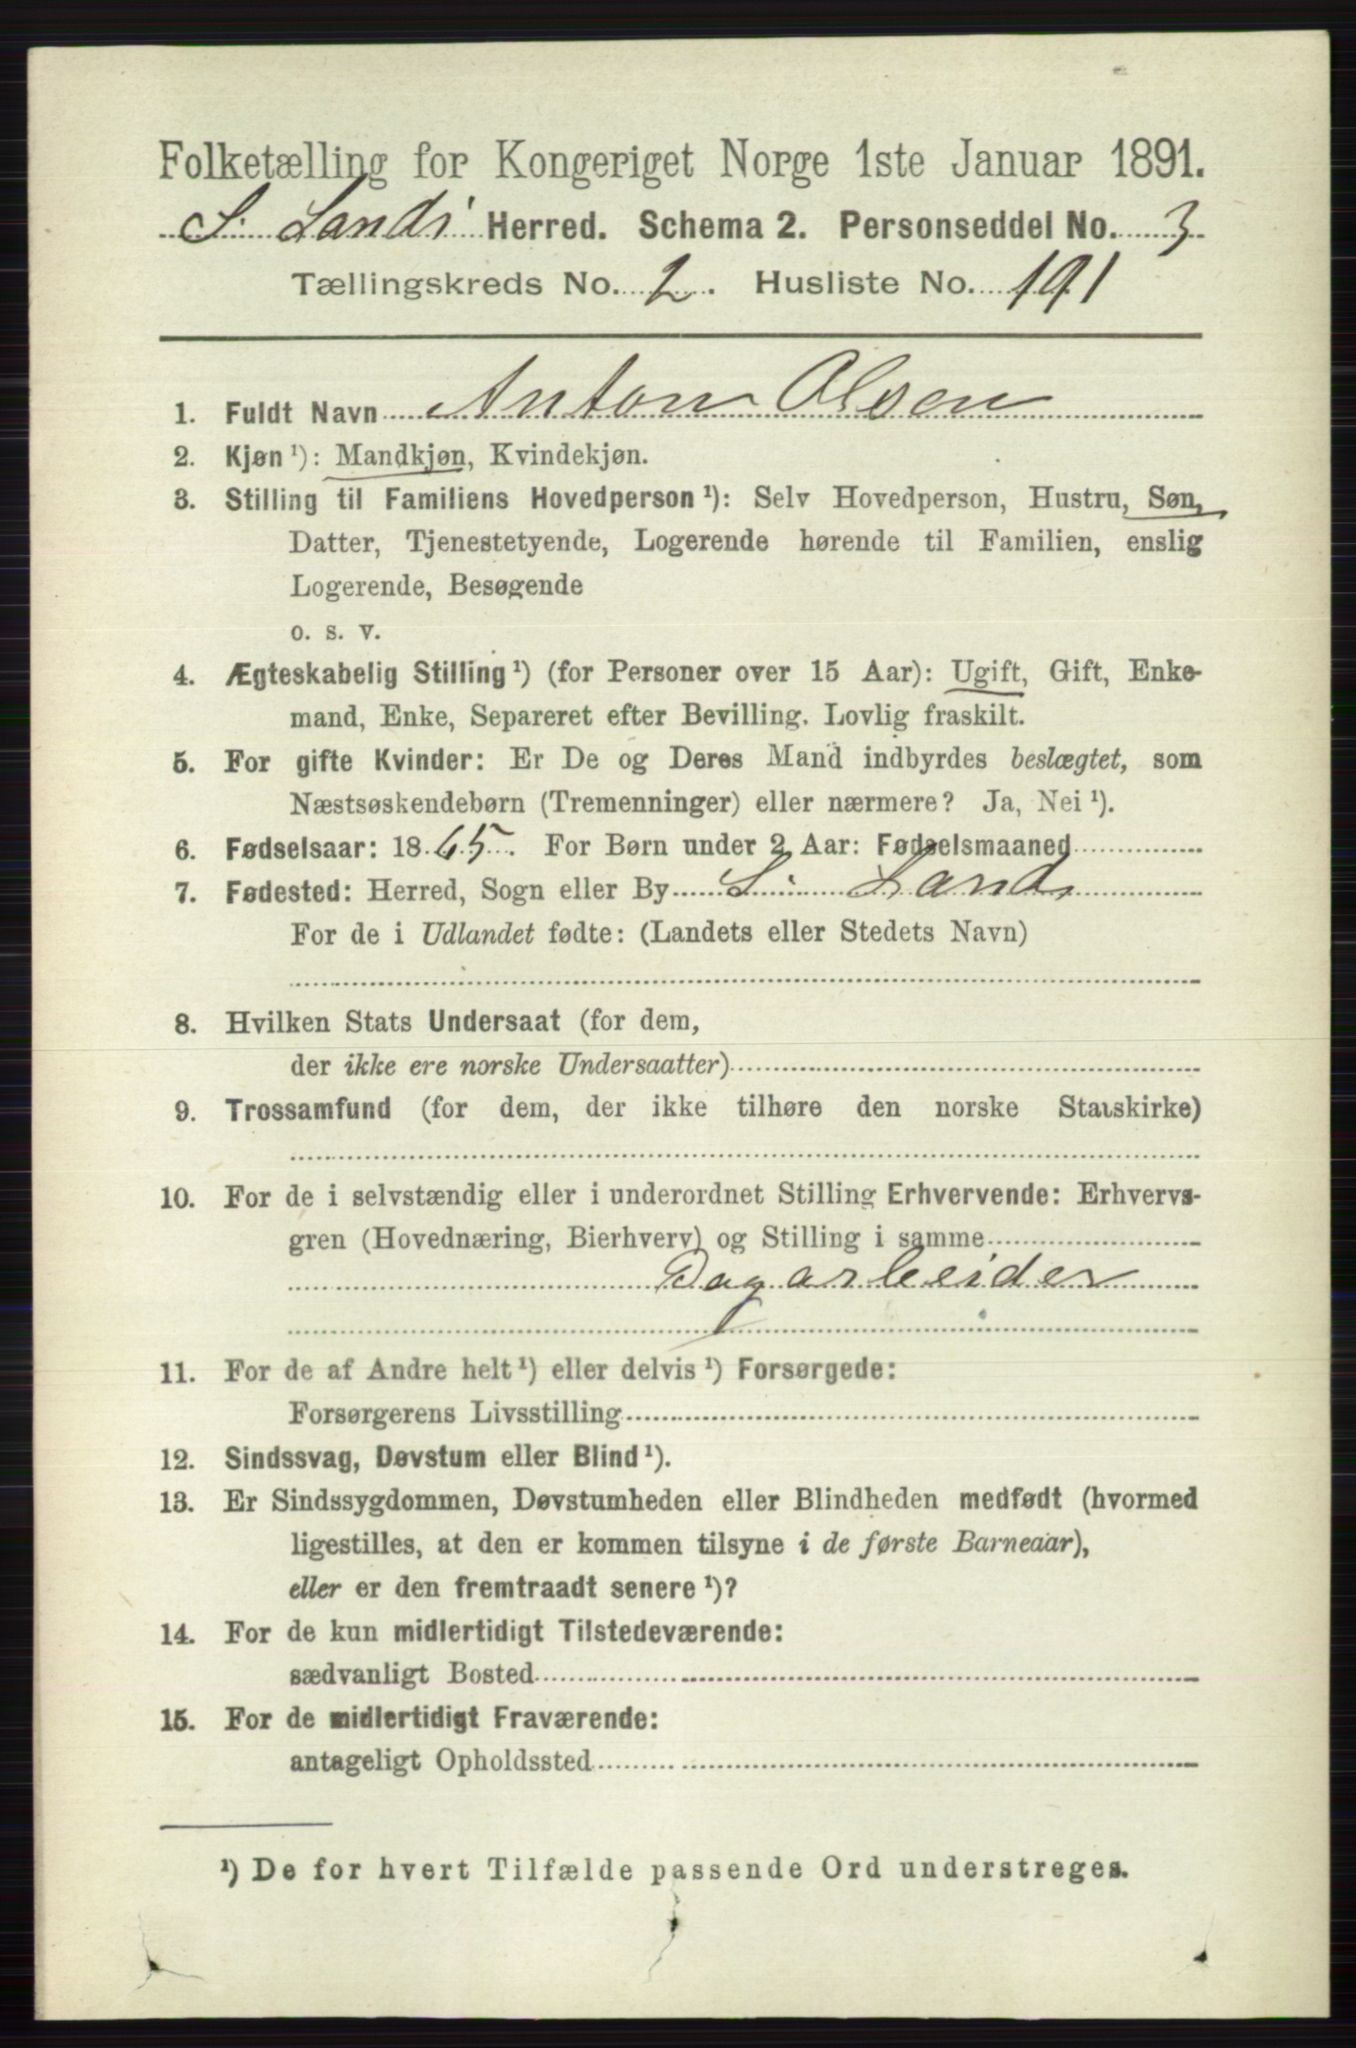 Folketælling for Kongeriget Norge 1ste Januar 1891.
S. Lands Herred. Schema 2. Personseddel No. 3
Tællingskreds No. 2. Husliste No. 191
1. Fuldt Navn Anton Olsen
2. Kjøn ¹): Mandkjøn, Kvindekjøn.
3. Stilling til Familiens Hovedperson ¹): Selv Hovedperson, Hustru, Søn,
Datter, Tjenestetyende, Logerende hørende til Familien, enslig
Logerende, Besøgende
o. s. v.
4. Ægteskabelig Stilling ¹) (for Personer over 15 Aar): Ugift, Gift, Enke-
mand, Enke, Separeret efter Bevilling. Lovlig fraskilt.
5. For gifte Kvinder: Er De og Deres Mand indbyrdes beslægtet, som
Næstsøskendebørn (Tremenninger) eller nærmere? Ja, Nei ¹).
6. Fødselsaar: 1865. For Børn under 2 Aar: Fødselsmaaned
7. Fødested: Herred, Sogn eller By S. Land
For de i Udlandet fødte: (Landets eller Stedets Navn)
8. Hvilken Stats Undersaat (for dem,
der ikke ere norske Undersaatter)
9. Trossamfund (for dem, der ikke tilhøre den norske Statskirke)
10. For de i selvstændig eller i underordnet Stilling Erhvervende: Erhvervs-
gren (Hovednæring, Bierhverv) og Stilling i samme
Dagarbeider
11. For de af Andre helt ¹) eller delvis ¹) Forsørgede:
Forsørgerens Livsstilling
12. Sindssvag, Døvstum eller Blind ¹).
13. Er Sindssygdommen, Døvstumheden eller Blindheden medfødt (hvormed
ligestilles, at den er kommen tilsyne i de første Barneaar),
eller er den fremtraadt senere ¹)?
14. For de kun midlertidigt Tilstedeværende:
sædvanligt Bosted
15. For de midlertidigt Fraværende:
antageligt Opholdssted
¹) De for hvert Tilfælde passende Ord understreges.